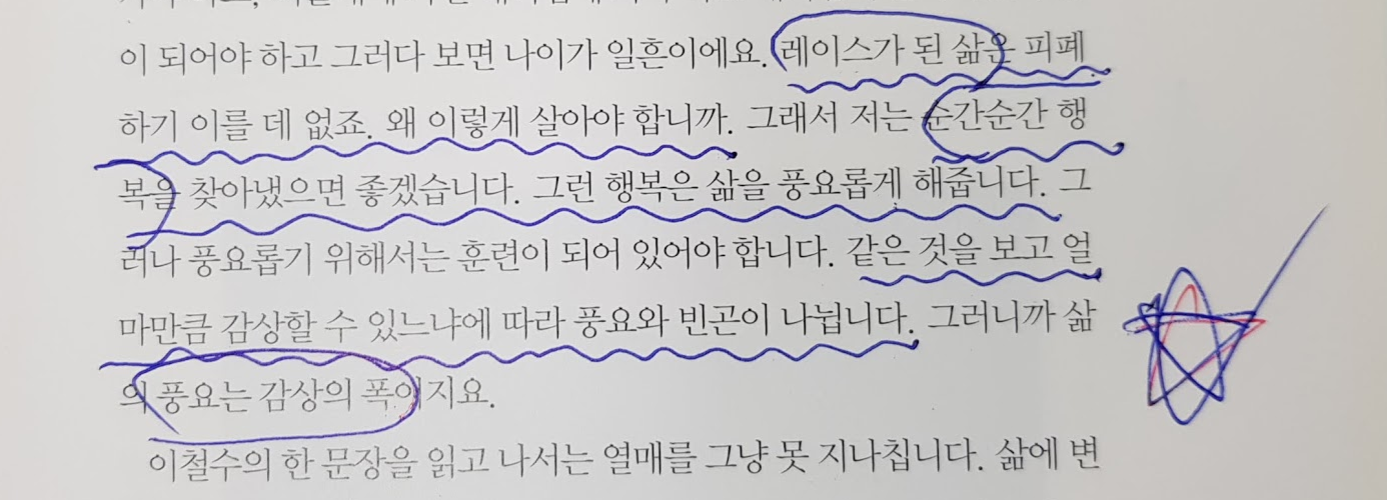 이 되어야 하고 그러다 보면 나이가 일흔이에요. 레이스가 된 삶은 피폐
하기 이를 데 없죠. 왜 이렇게 살아야 합니까. 그래서 저는 순간순간 행
복을 찾아냈으면 좋겠습니다. 그런 행복은 삶을 풍요롭게 해줍니다. 그
러나 풍요롭기 위해서는 훈련이 되어 있어야 합니다. 같은 것을 보고 얼
마만큼 감상할 수 있느냐에 따라 풍요와 빈곤이 나뉩니다. 그러니까 삶
의 풍요는 감상의 폭이지요.
이철수의 한 문장을 읽고 나서는 열매를 그냥 못 지나칩니다. 삶에 변